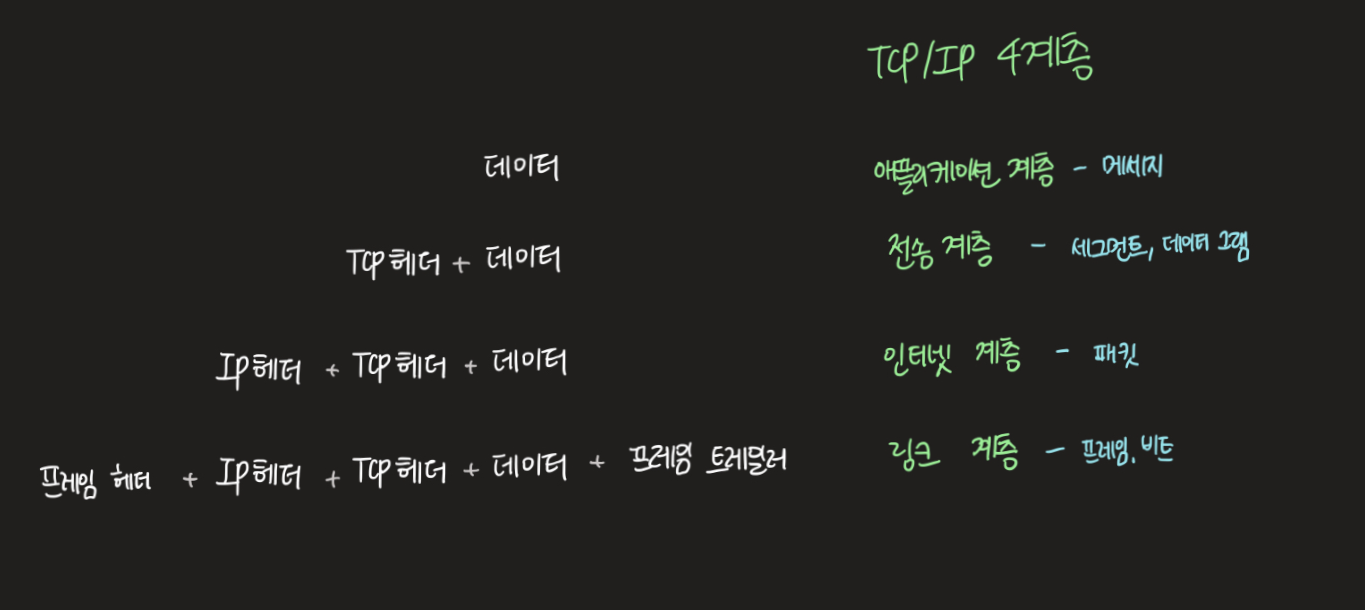 TCP/IP 4계층
데이터 애플리케이션 계층 - 메세지
TCP헤더 + 데이터 전송 계층 - 세그먼트, 데이터 그램
IP헤더 + TCP헤더 + 데이터 인터넷 계층 - 패킷
프레임 헤더 + IP헤더 + TCP헤더 + 데이터 + 프레임 트레일러 링크 계층 - 프레임, 비트